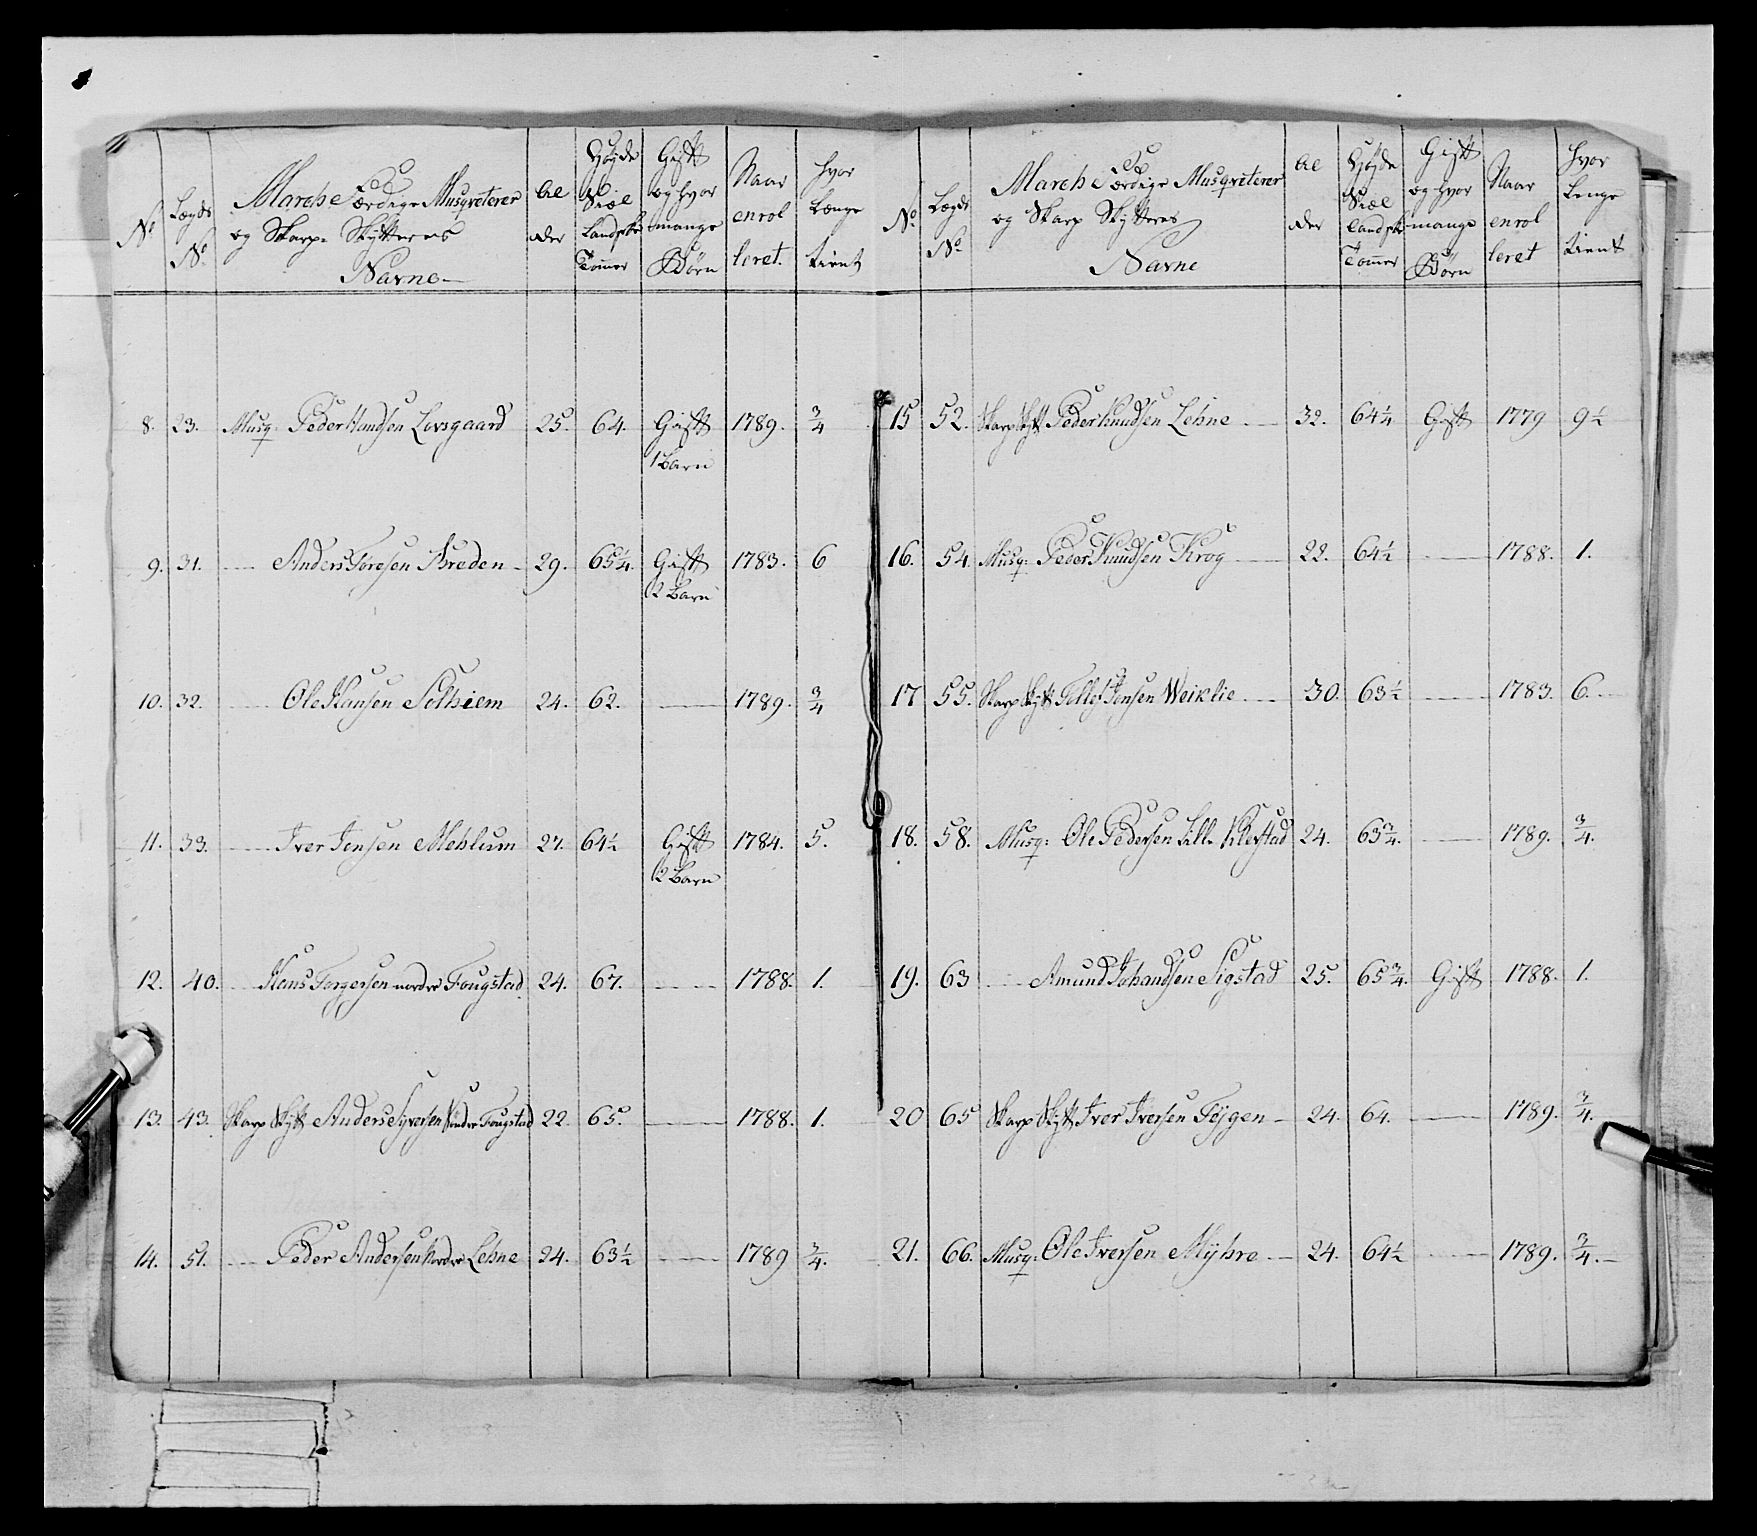 No.
Lægds No.
Marche Færdige Musqveterer og Skarp Skytternes Navne
Al der
Høyde Siæl landske Tommer
Gift og hvor mange Børn
Naar enrol leret.
Hvor Længe tient
8. 23. Musq: Peder Hansen Lovsgaard 25. 64. Gift 1789. 3/4
1 Barn
9. 31. Anders Toresen Breden 29. 65 1/4. Gift 1783. 6
2 Barn
10. 32. Ole Hansen Solhiem 24. 62. 1789. 3/4
11. 33. Iver Jensen Mehlum 27. 64 1/2 Gift 1784. 5.
2 Barn
12. 40. Hans Torgersen nordre Fougstad 24. 67. 1788. 1.
13. 43. Skarp Skytt Anders Syversen Søndre Fougstad 22. 65. 1788. 1.
14. 51. Peder Andersen Nordre Lehne 24. 63 1/2 1789 3/4.
No.
Lægds No
Marche Færdige Musqveterer og Skarp Skytternes Navne
Al der
Høyde Siæl landske Tommer
Gift og hvor mange Børn
Naar enrol leret
Hvor Lenge tient
15 52. Skarp Skytt Peder Knudsen Lehne 32. 64 1/4 Gift 1779 9 1/2
16. 54. Musq: Peder Knudsen Krog 22. 64 1/2 1788. 1.
17 55. Skarp Skytt Jensen Weiklie 30. 63 1/2 1783. 6.
18. 58. Musq: Ole Pedersen Lille Klevstad 24. 63 3/4. 1789. 3/4.
19. 63 Amund Johandsen Sigstad 25. 65 3/4. Gift 1788. 1.
20 65 Skarp Skytt Iver Iversen Tøjgen 24. 64. 1789. 3/4.
21. 66. Musq: Ole Iversen Myhre 24. 64 1/2 1789. 3/4.